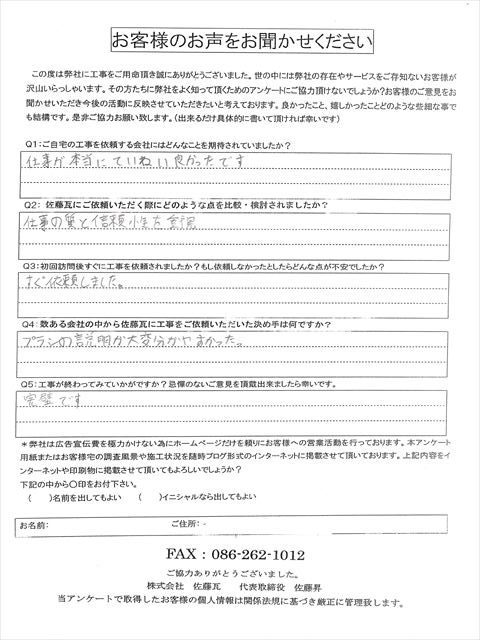 お客様のお声をお聞かせください
この度は弊社に工事をご用命頂き誠にありがとうございました。世の中には弊社の存在やサービスをご存知ないお客様が
沢山いらっしゃいます。その方たちに弊社をよく知って頂くためのアンケートにご協力頂けないでしょうか?お客様のご意見をお
聞かせいただき今後の活動に反映させていただきたいと考えております。良かったこと、嬉しかったことどのような些細な事で
も結構です。是非ご協力お願い致します。(出来るだけ具体的に書いて頂ければ幸いです)
Q1:ご自宅の工事を依頼する会社にはどんなことを期待されていましたか?
仕事が本当にていねい良かったです
Q2: 佐藤瓦にご依頼いただく際にどのような点を比較・検討されましたか?
仕事の質と信頼性を重視
Q3:初回訪問後すぐに工事を依頼されましたか?もし依頼しなかったとしたらどんな点が不安でしたか?
すぐ依頼しました。
Q4:数ある会社の中から佐藤瓦に工事をご依頼いただいた決め手は何ですか?
プランの説明が大変分かやすかった。
Q5:工事が終わってみていかがですか?忌憚のないご意見を頂戴出来ましたら幸いです。
完璧です
*弊社は広告宣伝費を極力かけない為にホームページだけを頼りにお客様への営業活動を行っております。本アンケート
用紙またはお客様宅の調査風景や施工状況を随時ブログ形式のインターネットに掲載させて頂いております。上記内容をイ
ンターネットや印刷物に掲載させて頂いてもよろしいでしょうか?
下記の中から〇印をお付下さい。
( )名前を出してもよい ( )イニシャルなら出してもよい
お名前: ご住所:
FAX:086-262-1012
ご協力ありがとうございました。
株式会社 佐藤瓦 代表取締役 佐藤昇
当アンケートで取得したお客様の個人情報は関係法規に基づき厳正に管理致します。